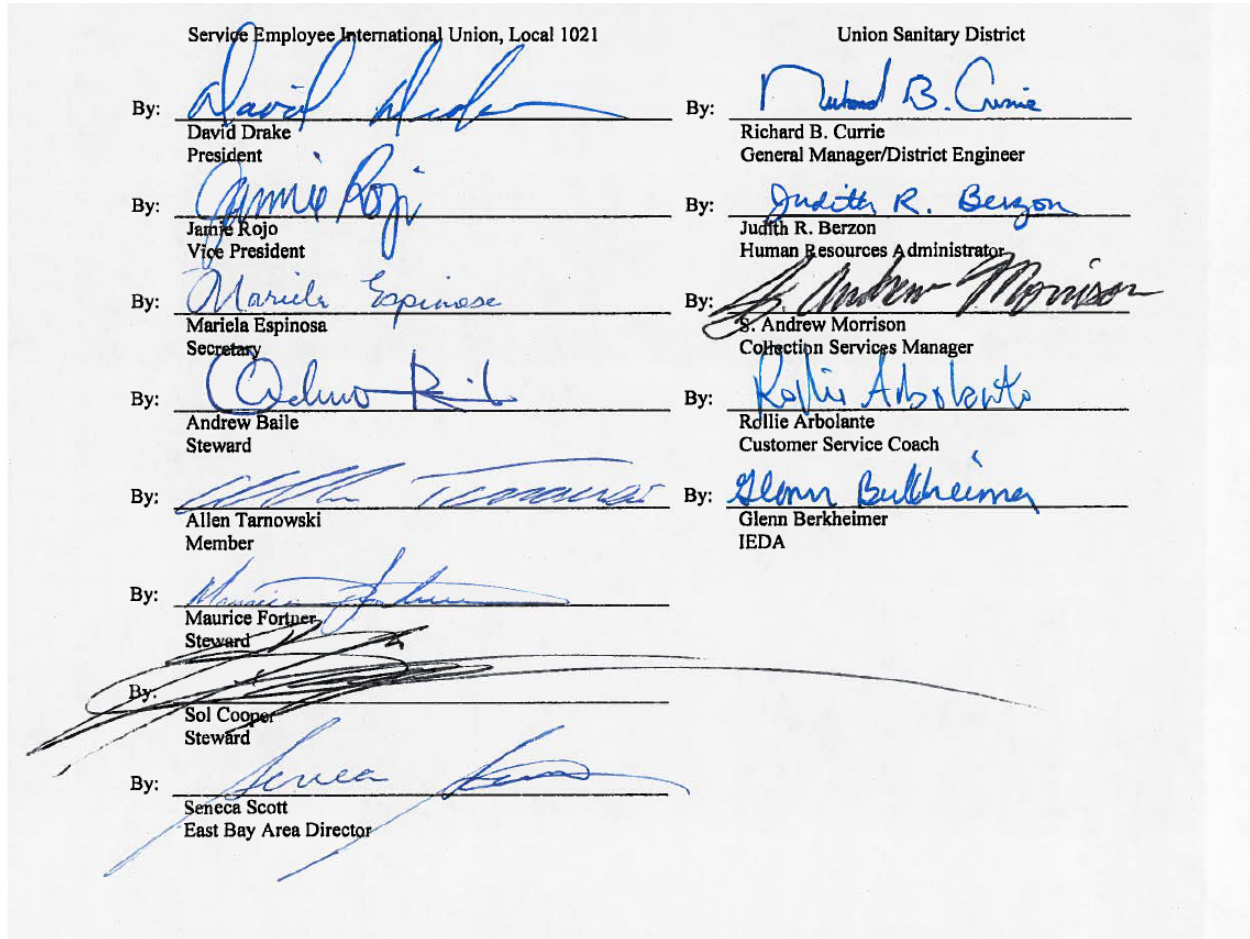 Service Employee International Union, Local 1021
By: David Drake
David Drake
President
By: Jamie Rojo
Jamie Rojo
Vice President
By: Mariela Espinosa
Mariela Espinosa
Secretary
By:
Andrew Baile
Steward
By: Allen
Allen Tarnowski
Member
By: Maurice
Maurice Fortner
Steward
By:
Sol Cooper
Steward
By: Seneca
Seneca Scott
East Bay Area Director
Union Sanitary District
By: Richard B. Currie
Richard B. Currie
General Manager/District Engineer
By: Judith R. Berzon
Judith R. Berzon
Human Resources Administrator
By: S. Andrew Morrison
S. Andrew Morrison
Collection Services Manager
By: Rollie Arbolante
Rollie Arbolante
Customer Service Coach
By: Glenn Berkheimer
Glenn Berkheimer
IEDA